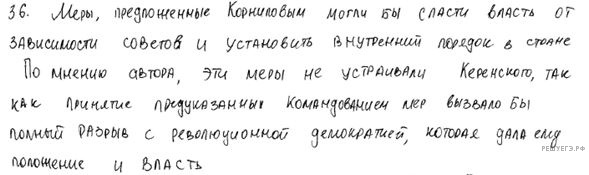 36. Меры, предложенные Корниловым могли бы спасти власть от
зависимости советов и установить внутренний порядок в стране
По мнению автора, эти меры не устраивали Керенского, так
как принятие предуказанных командованием мер вызвало бы
полный разрыв с революционной демократией, которая дала ему
положение и власть
РЕШУЕГЭ.РФ